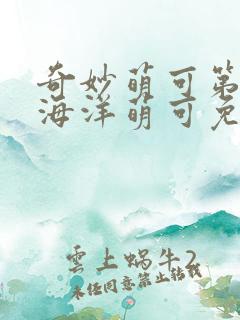 奇妙萌可第
海洋萌可免
雲上蜗牛2
未经同意禁止转载